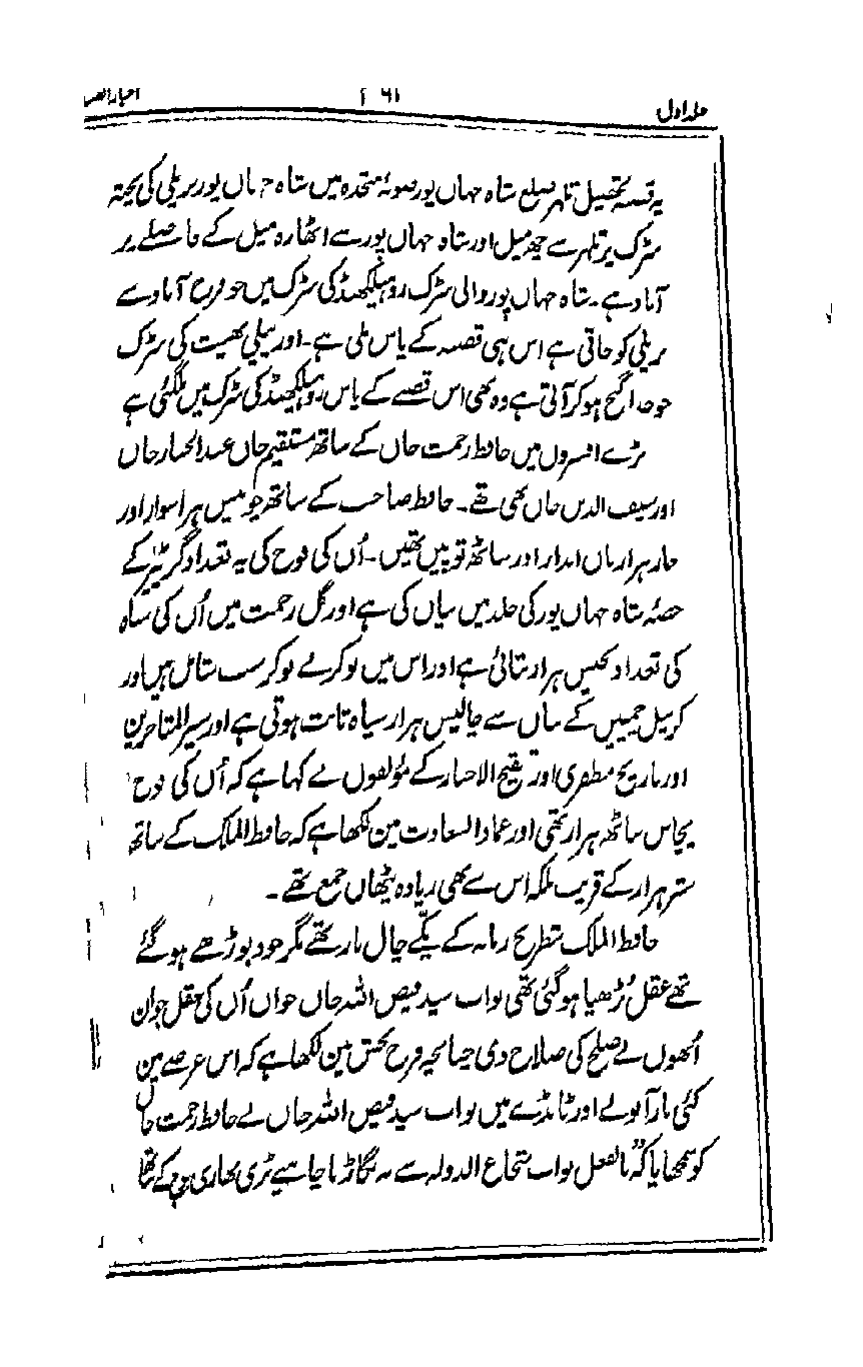 جلد اول ۶۱ اخبار الصنا
یہ قصبہ تحصیل تلہر ضلع شاہ جہاں پور صوبۂ متحدہ میں شاہ جہاں پور بریلی کی پختہ
سڑک پر تلہر سے چھ میل اور شاہ جہاں پور سے اٹھارہ میل کے فاصلے پر
آباد ہے۔ شاہ جہاں پور والی سڑک روہیلکھنڈ کی سڑک میں جو فرخ آباد سے
بریلی کو جاتی ہے اس ہی قصبہ کے پاس ملی ہے۔ اور پیلی بھیت کی سڑک
جو خدا گنج ہو کر آتی ہے وہ بھی اس قصبے کے پاس روہیلکھنڈ کی سڑک میں ملگئی ہے
بڑے افسروں میں حافظ رحمت خاں کے ساتھ مستقیم خاں عبد الجبار خاں
اور سیف الدین خاں بھی تھے۔ حافظ صاحب کے ساتھ چوبیس ہزار سوار اور
چار ہزار بان انداز اور ساٹھ توپیں تھیں۔ اُن کی فوج کی یہ تعداد گزیٹیر کے
حصۂ شاہ جہاں پور کی جلد میں بیان کی ہے اور گل رحمت میں اُن کی سپاہ
کی تعداد پچیس ہزار بتائی ہے اور اس میں نوکر بے نوکر سب شامل ہیں اور
کرنیل چمپین کے بیان سے چالیس ہزار سپاہ ثابت ہوتی ہے اور سیر المتاخرین
اور تاریخ مظفری اور تنقیح الاخبار کے مؤلفوں نے کہا ہے کہ اُن کی فوج
پچاس ساٹھ ہزار تھی اور عماد السعادت مین لکھا ہے کہ حافظ الملک کے ساتھ
ستر ہزار کے قریب بلکہ اس سے بھی زیادہ پٹھان جمع تھے۔
حافظ الملک شطرنج زمانہ کے پکے چال باز تھے مگر خود بوڑھے ہو گئے
تھے عقل بُڑھیا ہو گئی تھی نواب سید فیض اللہ خاں جوان اُن کی عقل جوان
اُنھوں نے صلح کی صلاح دی چنانچہ فرح بخش مین لکھا ہے کہ اس عرصے مین
کئی بار آنولے اور ٹانڈے میں نواب سید فیض اللہ خاں نے حافظ رحمت خاں
کو سمجھایا کہ ”بالفعل نواب شجاع الدولہ سے نہ بگاڑنا چاہیے بڑی بھاری فوج کے ساتھ